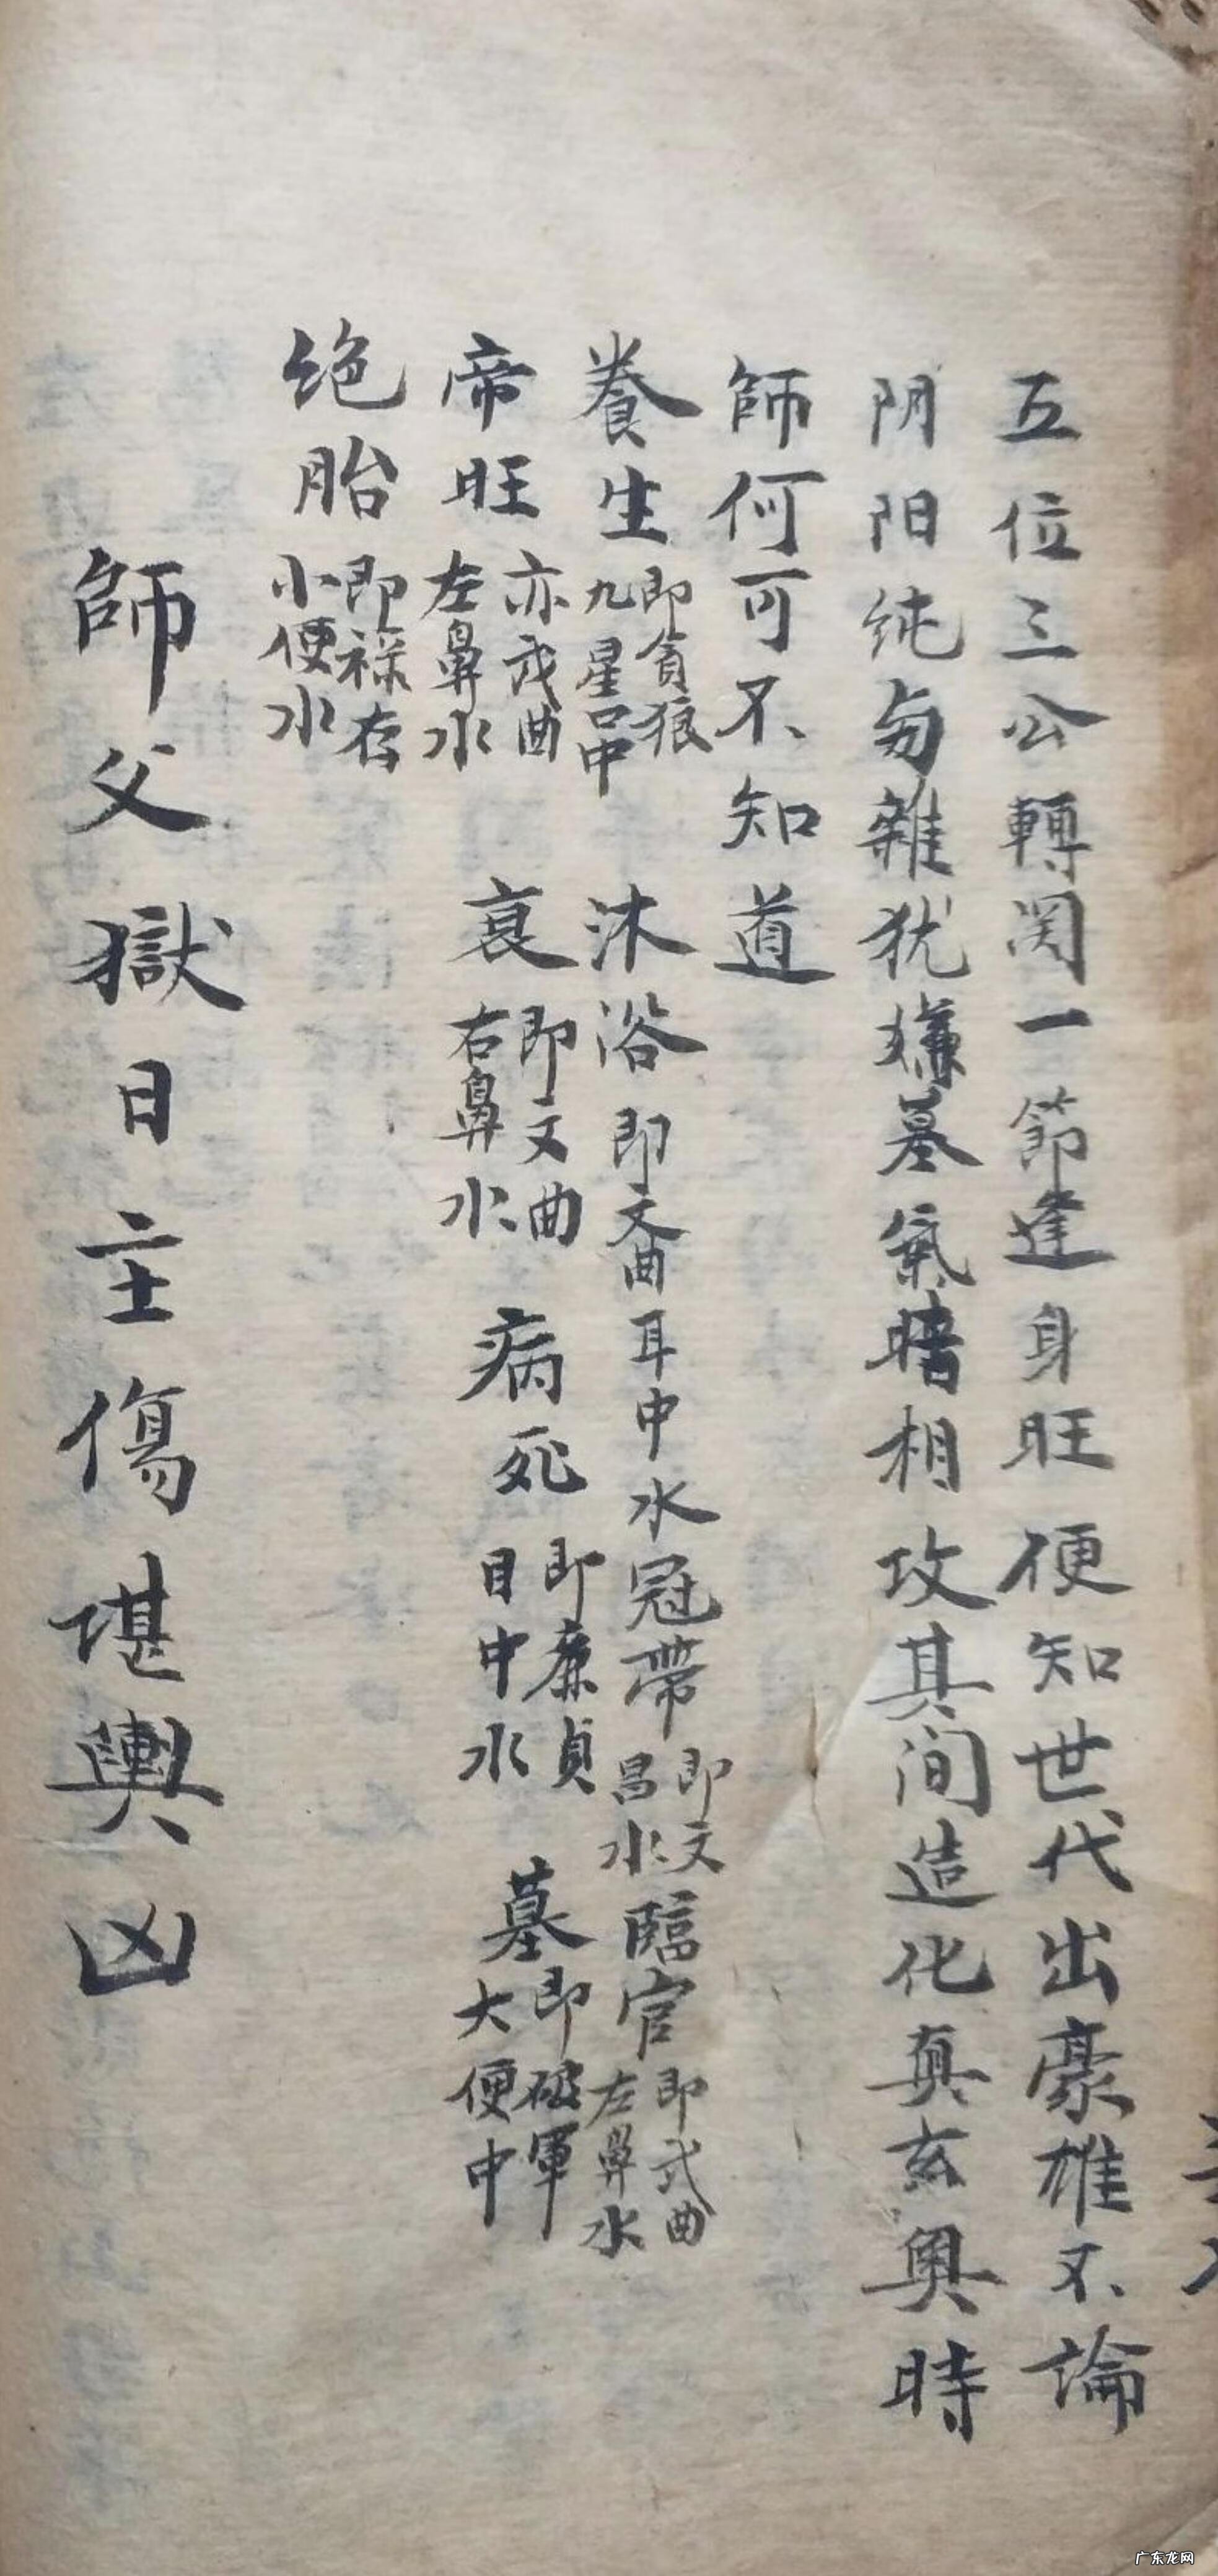 五位三公轉関一節逢身旺便知世代出豪雄不論
阴阳纯勿雜犹嫌墓氣暗相攻其间造化真玄奥時
師何可不知道
養生即貪狼九星口中 沐浴即文曲耳中水冠帶即文昌水臨官即武曲左鼻水
帝旺亦武曲左鼻水 衰即文曲右鼻水 病死即廉貞目中水 墓即破軍大便中
绝胎即禄存小便水
師父獄日主傷堪輿凶
广东龙网